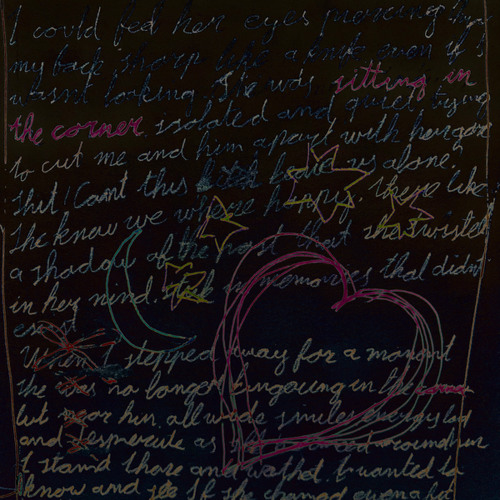 I could feel her eyes piercing
my back sharp like a knife even if I
wasnt looking. She was sitting in
the corner isolated and quiet trying
to cut me and him apart with her gaze
shit! Cant this bitch leave us alone?
She knew we where happy. there like
a shadow of the past that she twisted
in her mind. in memories that didnt
exist
When I stepped away for a moment
She was no longer lingouring in the corner
but near him, all wide smiles energised
and desperate as she around him
I stand those and wathed. I wanted to
know and see if she